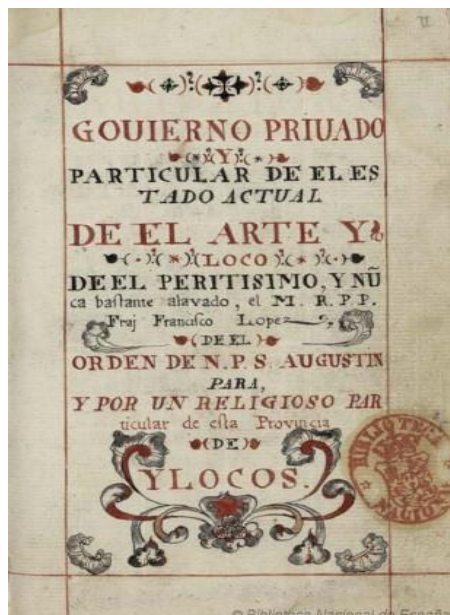 GOUIERNO PRIUADO
Y
PARTICULAR DE EL ES
TADO ACTUAL
DE EL ARTE Y
LOCO
DE EL PERITISIMO, Y NŪ
ca bastante alavado, el M. R. P. P.
Fraj Francisco Lopez
DE EL
ORDEN DE N. P. S. AUGUSTIN
PARA,
Y POR UN RELIGIOSO PAR
ticular de esta Provincia
DE
YLOCOS.
BIBLIOTECA
NACIONAL
© Biblioteca Nacional de España